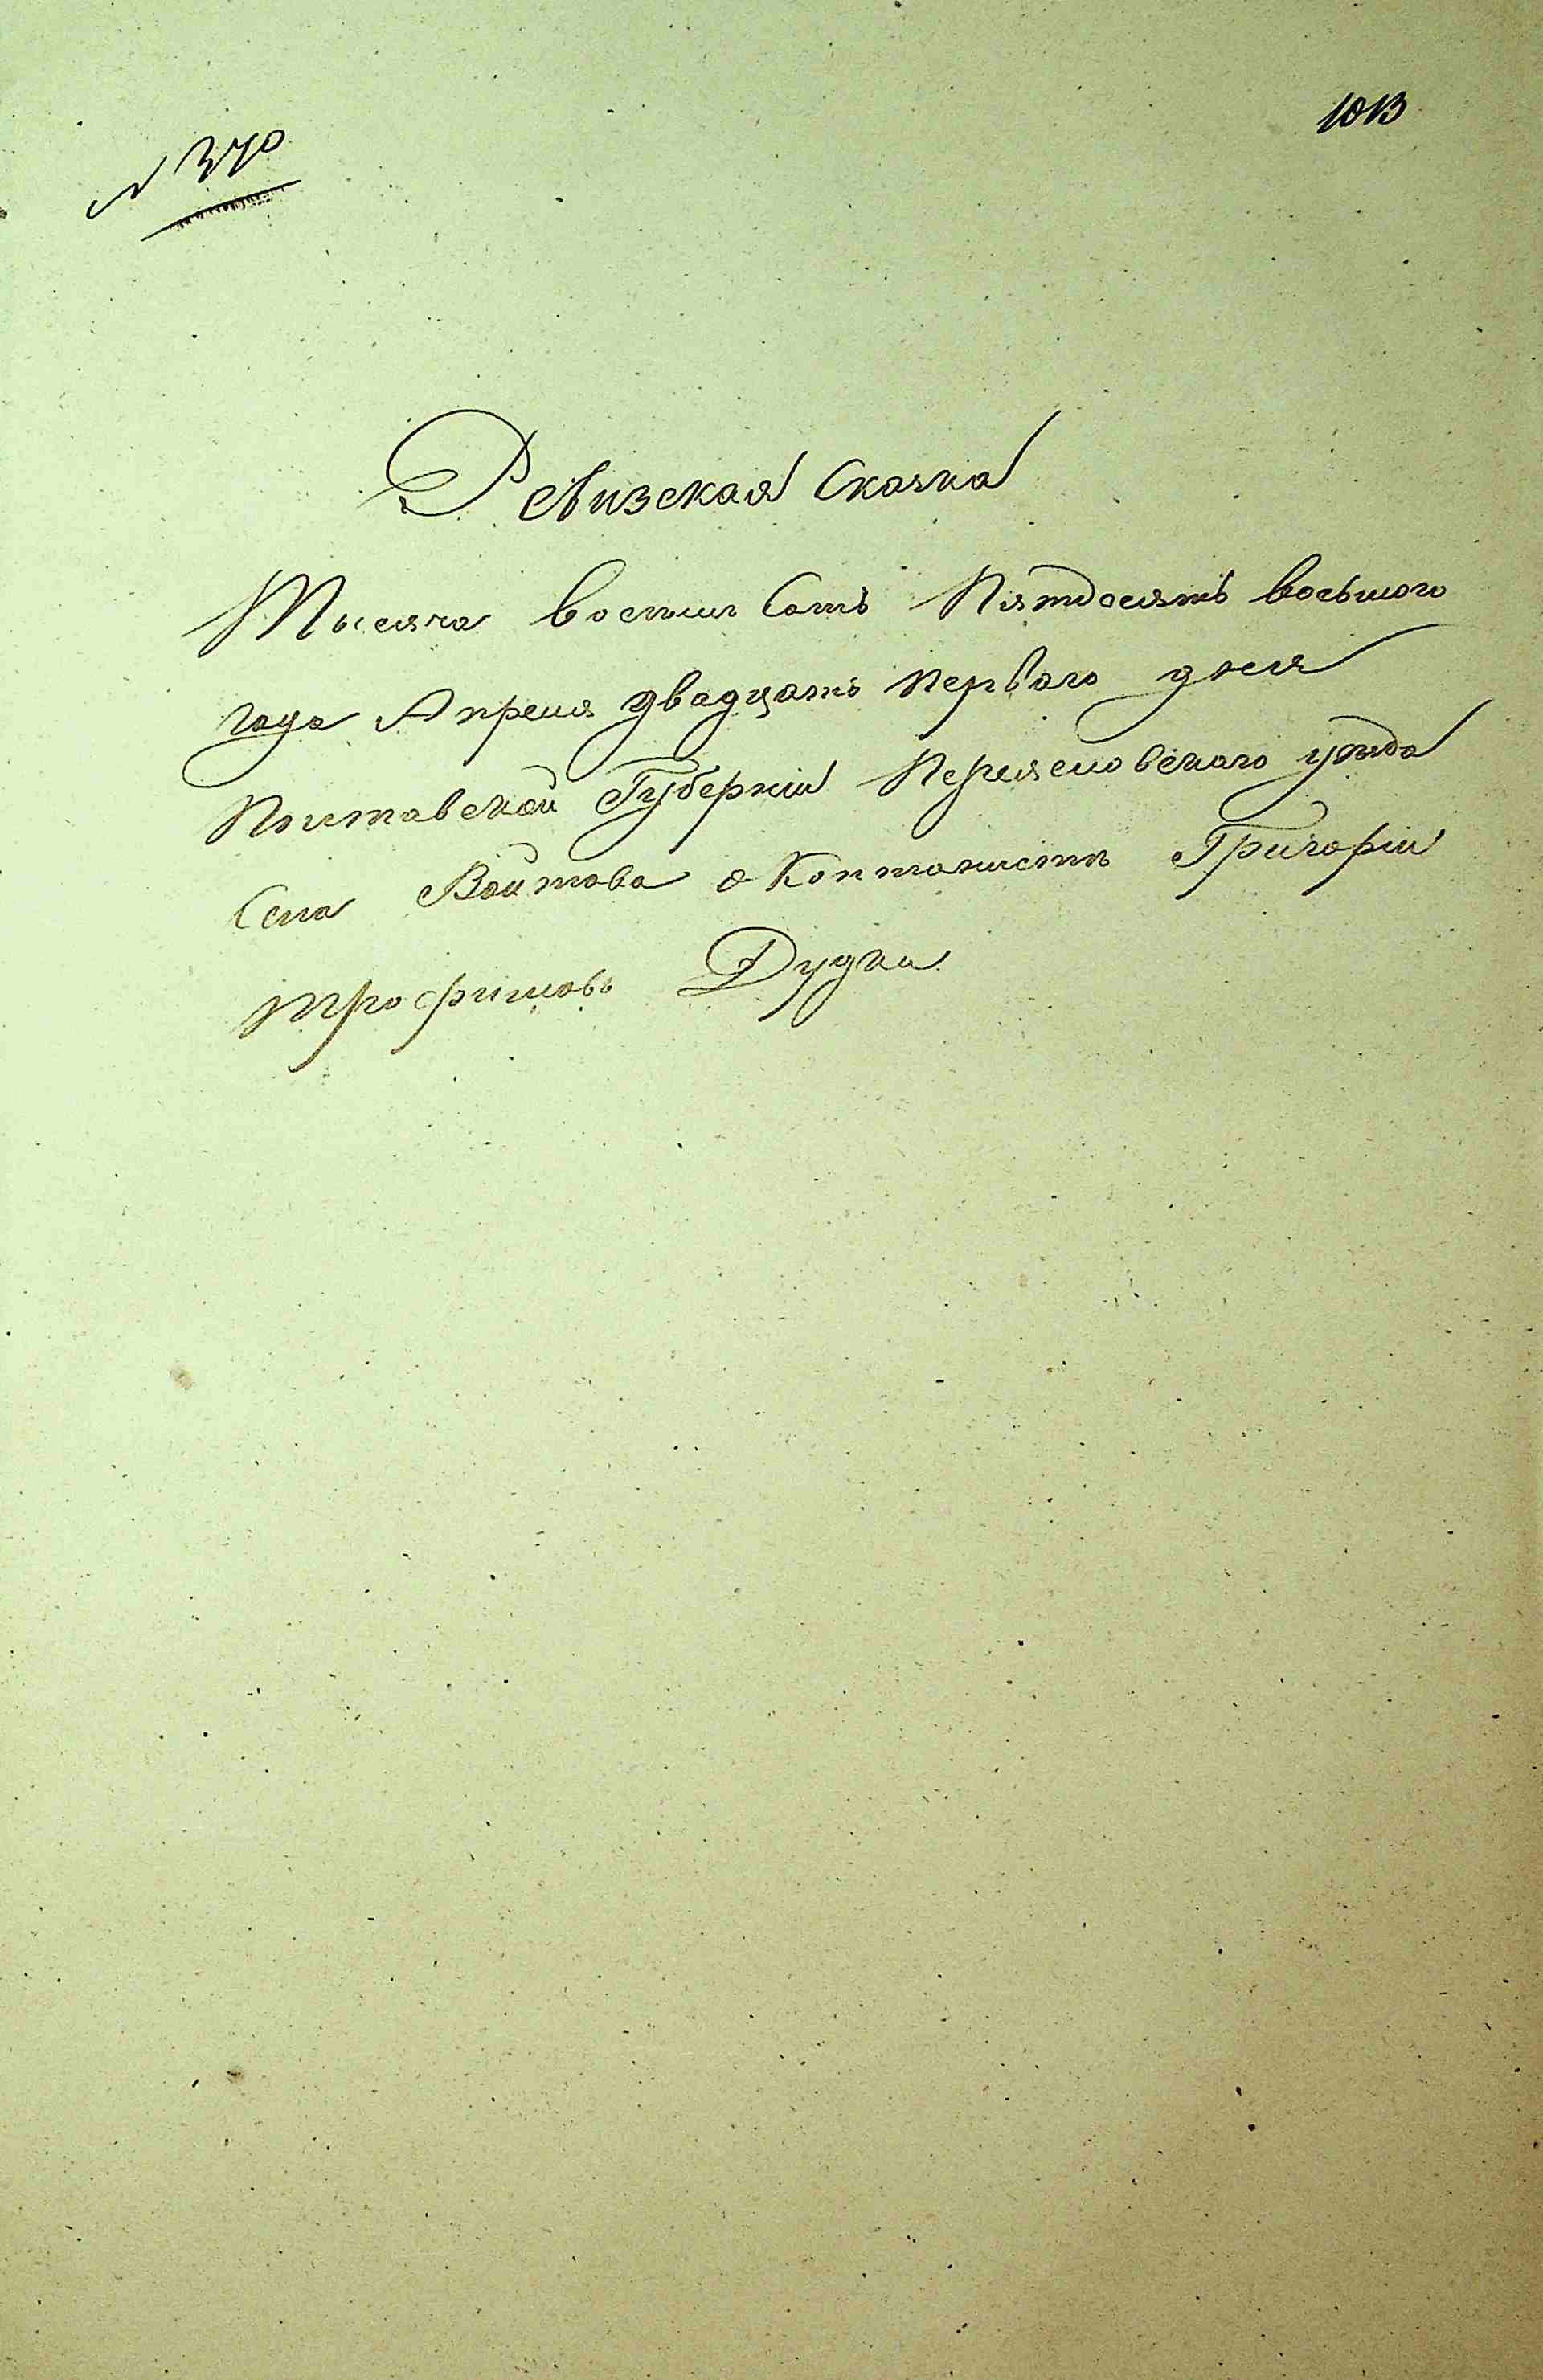 1013
N 370
Ревизская Сказка
Тысяча восемь Сотъ Пятдесятъ восьмого
года Апреля двадцать первого дня
Полтавской Губернии Переясловского уезда
Села Войтова о Коптонисте Григории
трофимовъ Дудки